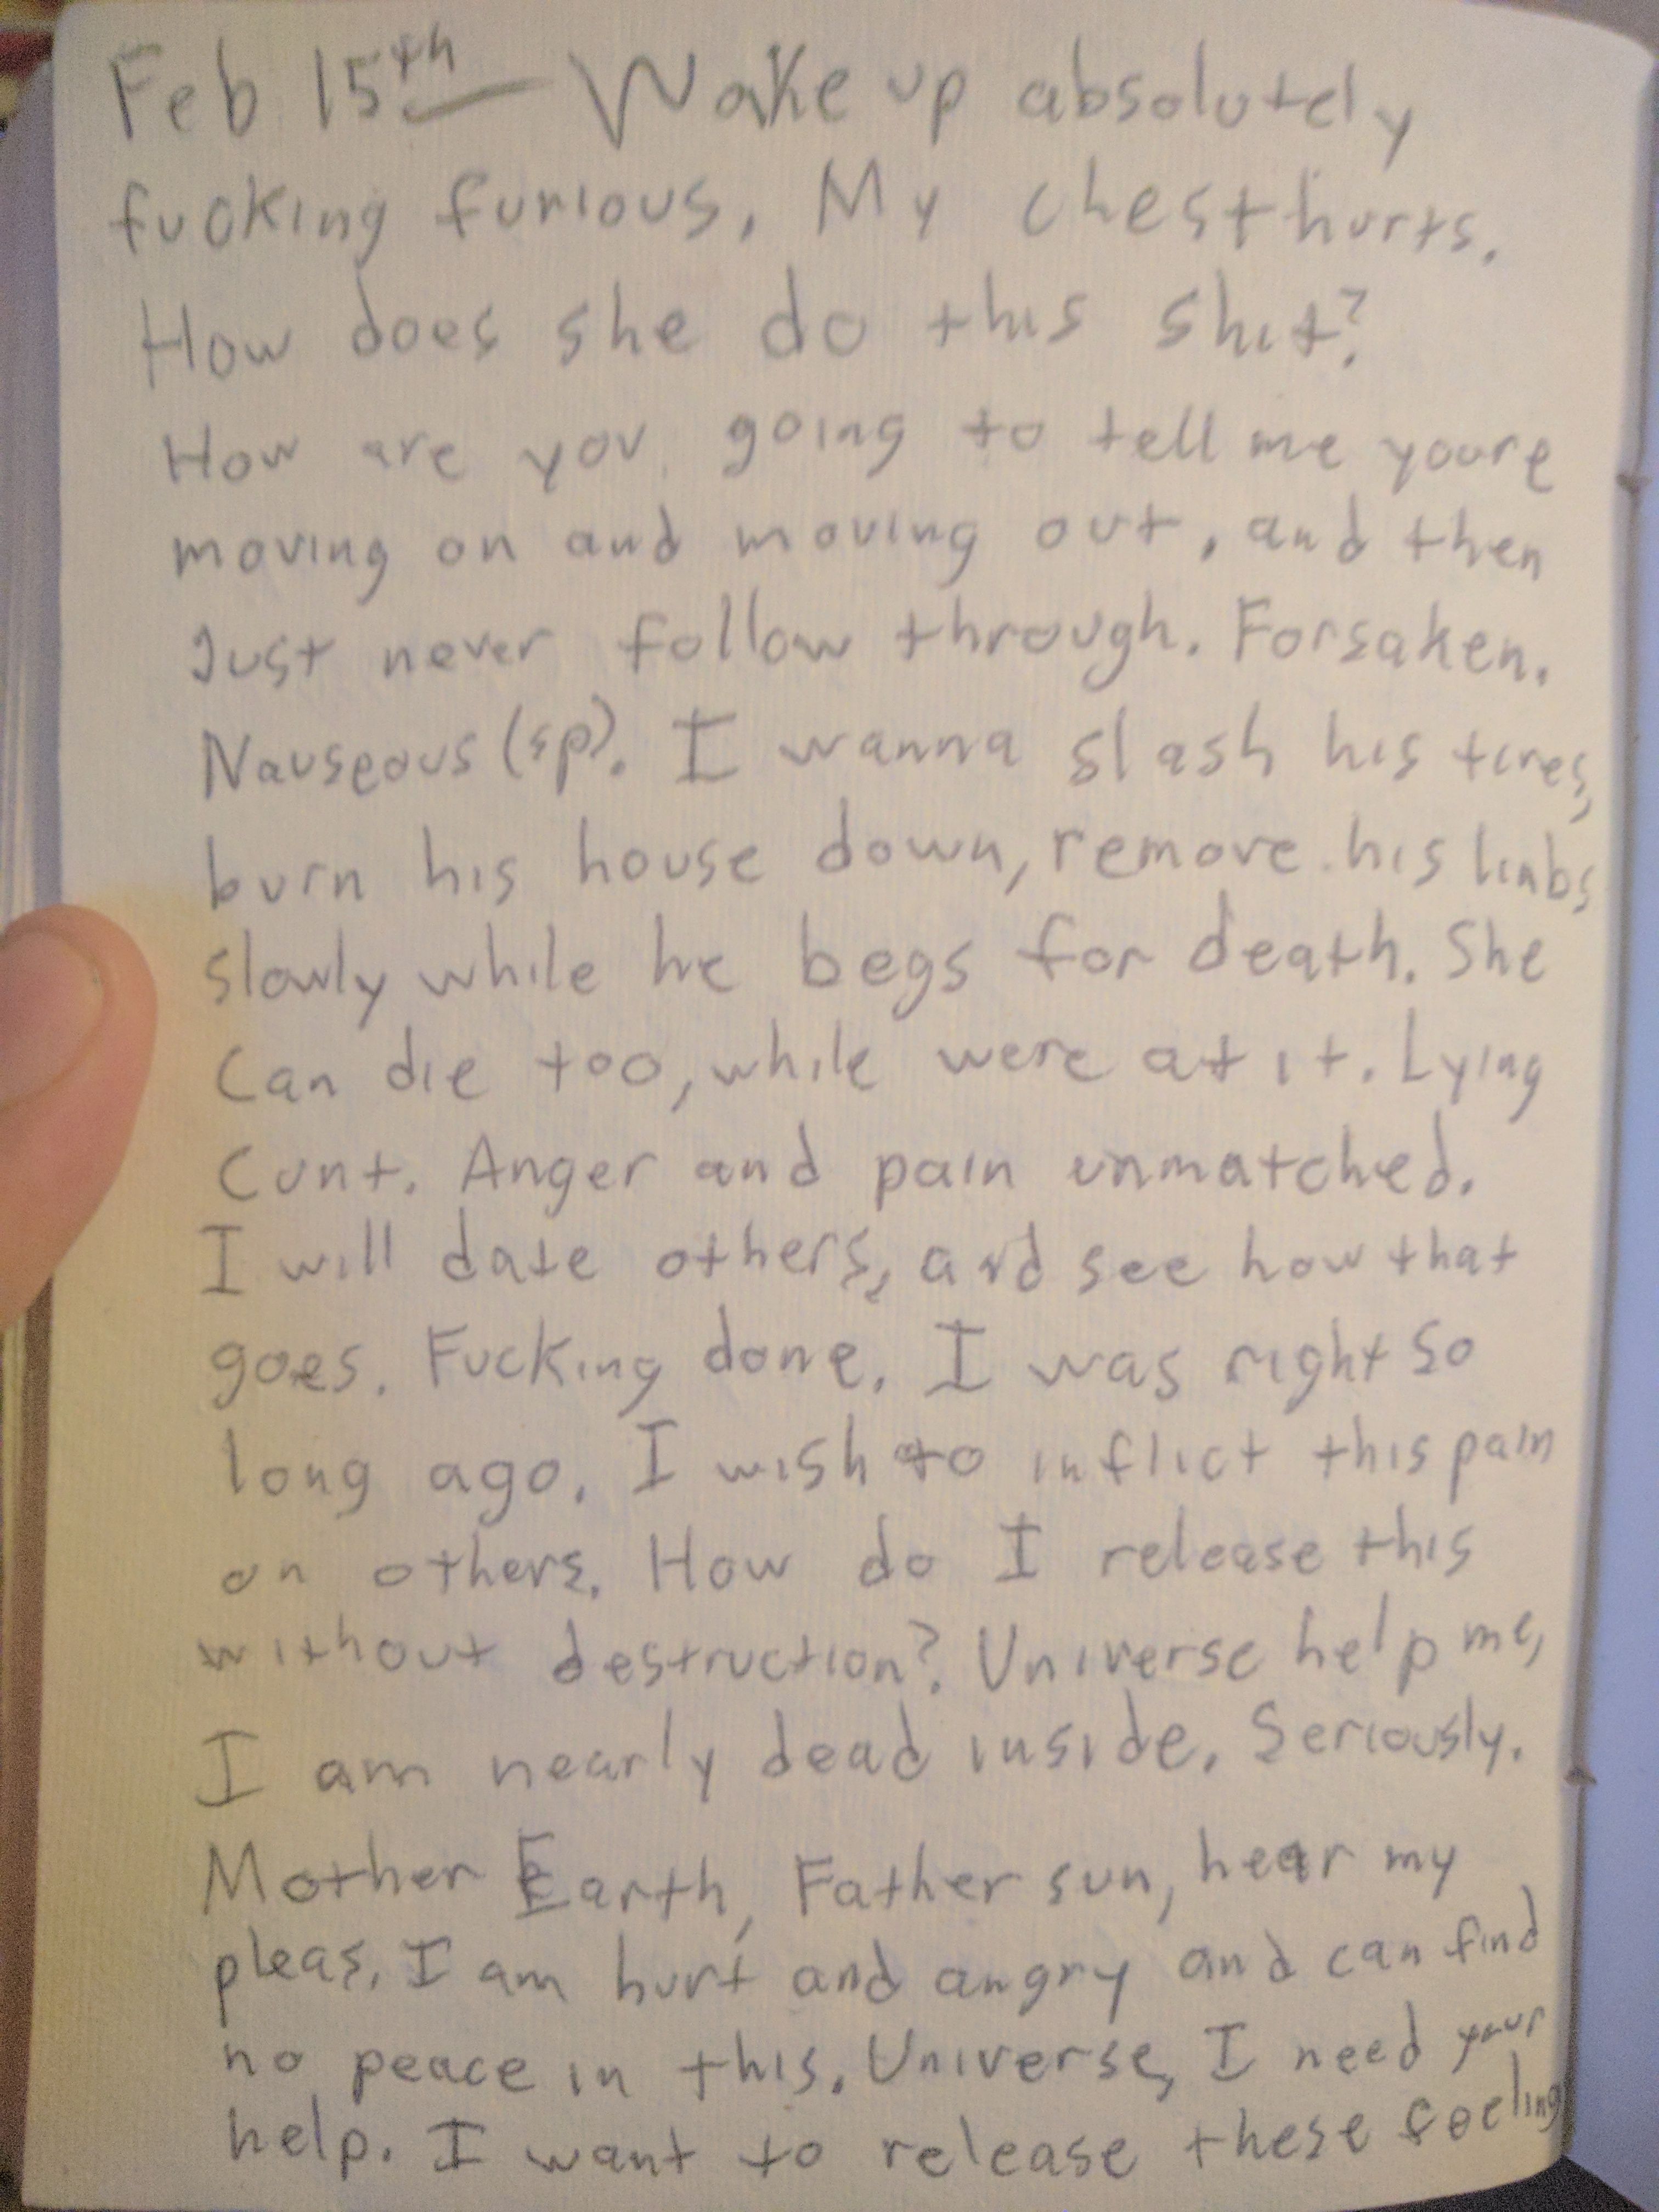 Feb 15th - Wake up absolutely
fucking furious. My chest hurts.
How does she do this shit?
How are you going to tell me youre
moving on and moving out, and then
Just never follow through. Forsaken.
Nauseous (sp). I wanna slash his tires,
burn his house down, remove his limbs
slowly while he begs for death. She
Can die too, while were at it. Lying
Cunt. Anger and pain unmatched.
I will date others, and see how that
goes. Fucking done. I was right so
long ago. I wish to inflict this pain
on others. How do I release this
without destruction? Universe help me,
I am nearly dead inside. Seriously.
Mother Earth, Father sun, hear my
pleas. I am hurt and angry and can find
no peace in this. Universe, I need your
help. I want to release these feeling